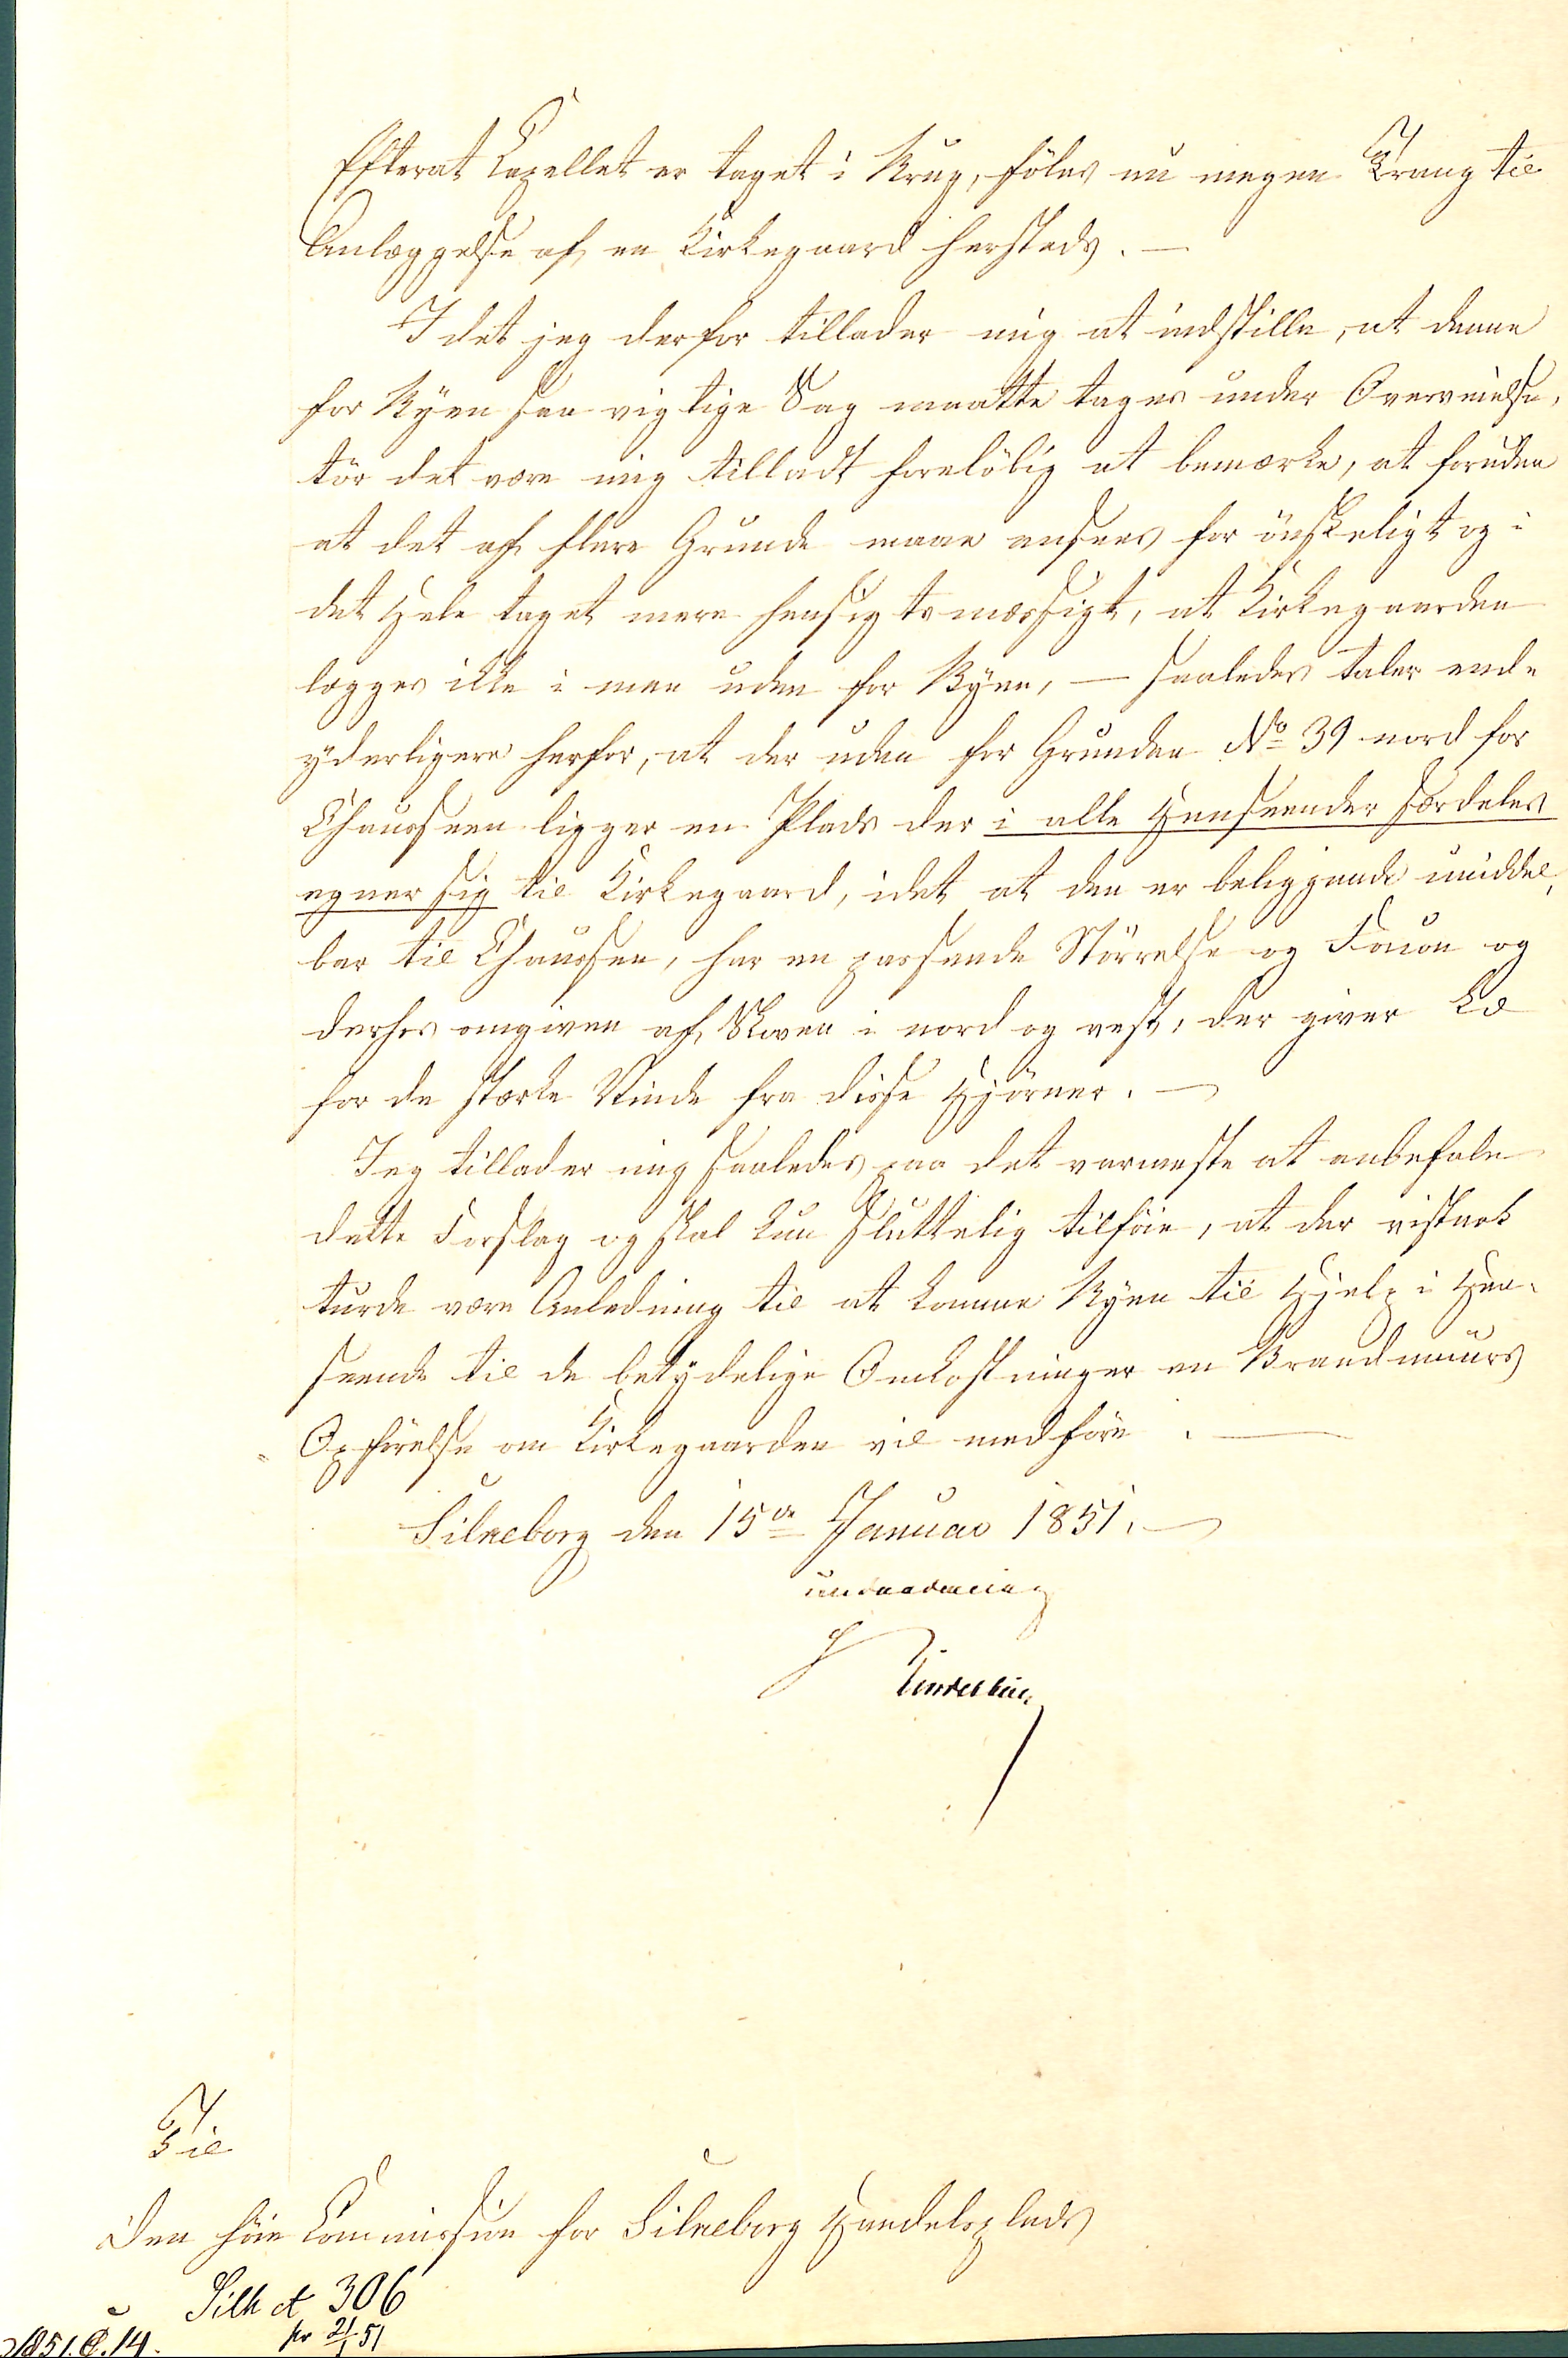 Efterat Capellet er taget i Brug, föles nu megen Trang til
Anlæggelse af en Kirkegaard hersteds. —
Idet jeg derfor tillader mig at indstille, at denne
for Byen saa vigtige Sag maatte tages under Overveielse,
tör det være mig tilladt forelöbig at bemærke, at foruden
at det af flere Grunde maae ansees for önskeligt og i
det Hele taget mere hensigtsmæssigt, at Kirkegaarden
lægges ikke i men uden for Byen, — saaledes taler end-
yderligere herfor, at der uden for Grunden No 39 nord for
Chausseen ligger en Plads der i alle Henseender særdeles
egner sig til Kirkegaard, idet at den er beliggende umiddel,
bar til Chausseen, har en passende Störrelse og Facon og
derhos omgiven af Skoven i nord og vest, der giver Læ
for de stærke Vinde fra disse Hjörner. —
Jeg tillader mig saaledes paa det varmeste at anbefale
dette Forslag og skal kun sluttelig tilföie, at der vistnok
turde være Anledning til at komme Byen til Hjelp i Hen-
seende til de betydelige Omkostninger en Brandmuurs
Opförelse om Kirkegaarden vil medföre. —
Silkeborg den 15de Januar 1851. —
underdanig
Til
Den höie Commission for Silkeborg Handelsplads
Silk ct 306
pr 21/1 51
1851. C. 14.